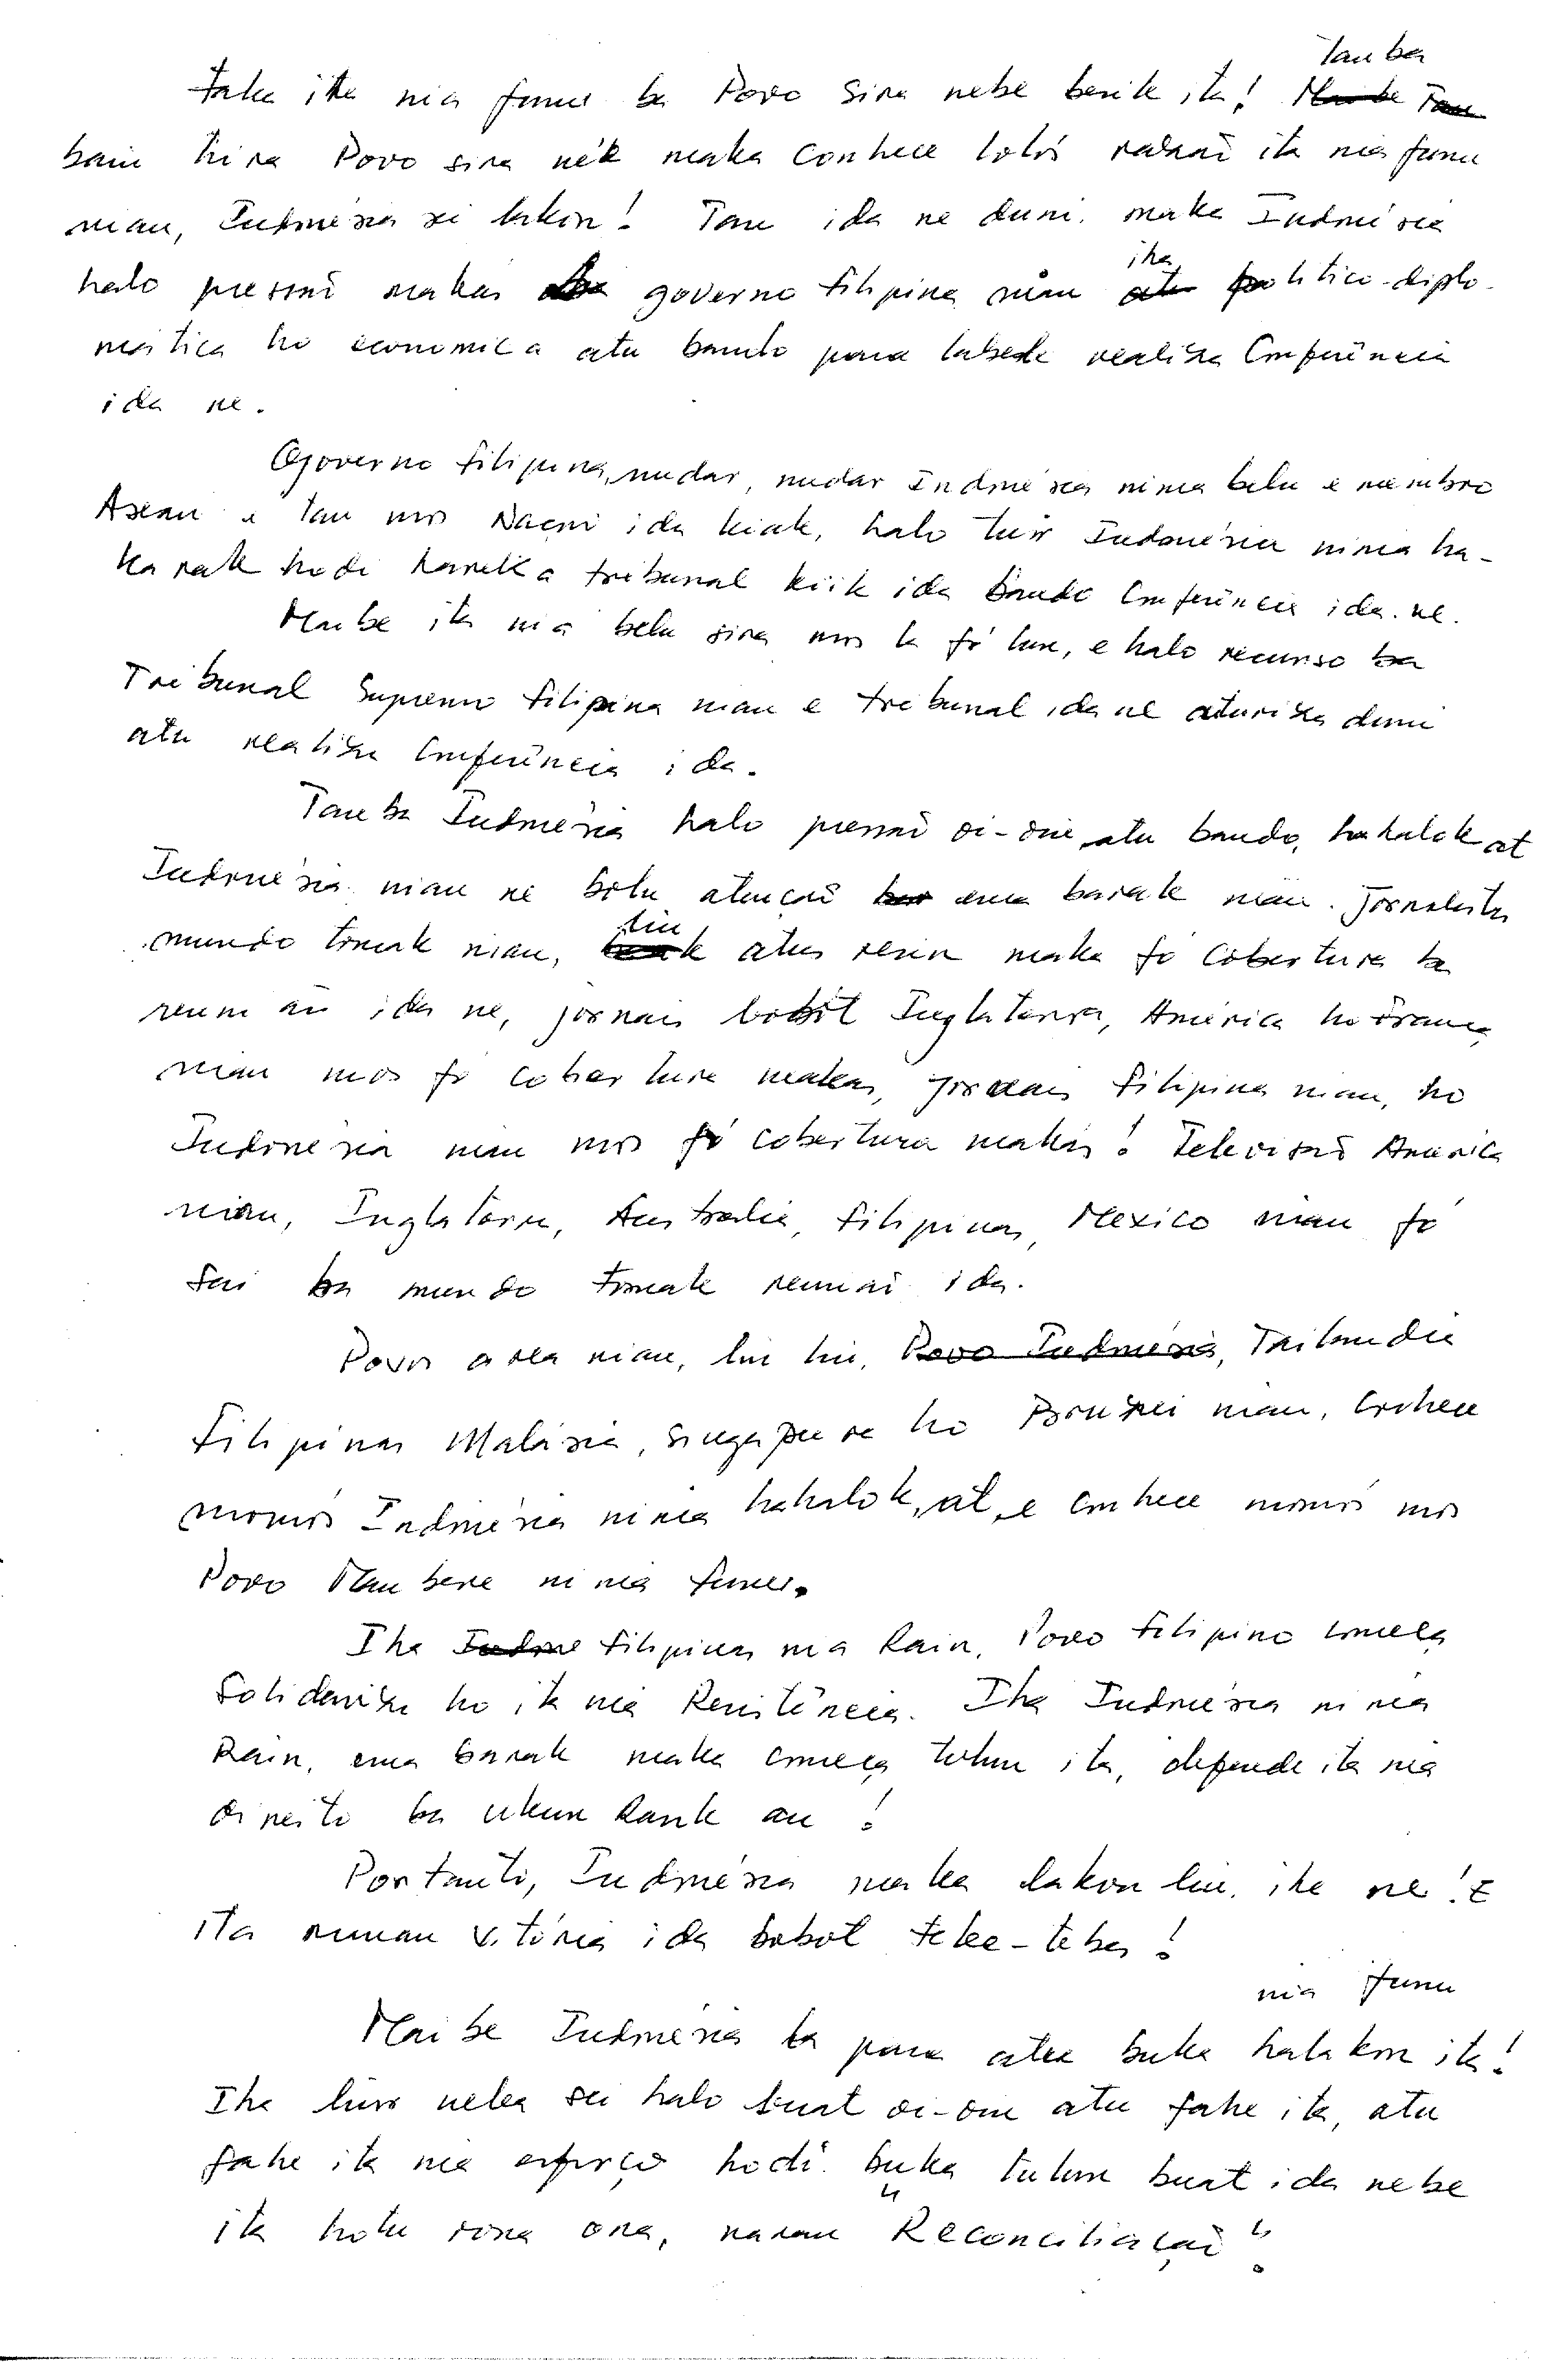 Taka ita nia funu ba Povo sira nebe besik ita! Tau ba
bain hira Povo sira nék maka conhece lolós razaõ ita nia funu
nian, Indonésia sei lakon! Tau ida ne duni, maka Indonésia
halo pressaõ makas governo Filipina nian iha politico-diplo-
mática ho economica atu bandu para labele realiza Conferência
ida ne.
Governo Filipina, nudar, nudar Indonésia ninia belu e membro
Asean e tau mos Naçaõ ida kiak, halo tuir Indonésia ninia ha-
karak hodi haruka tribunal kiik ida bandu Conferência ida ne.
Maibe ita nia belu sira mos la fó lun, e halo recurso
Tribunal Supremo Filipina nian e tribunal ida ne autoriza duni
atu realiza Conferência ida.
Tau ba Indonésia halo pressaõ oi-oin atu bandu, hahalok at
Indonésia nian ne bolu atençaõ ema barak nian. Jornalista
mundo tomak nian, liu atus resin maka fó cobertura ba
reuniaõ ida ne, jornais bobót Inglaterra, América ho França
nian mos fó cobertura makas, jornais Filipinas nian, ho
Indonésia nian mos fó cobertura makas! Televisaõ América
nian, Inglaterra, Australia, Filipinas, Mexico nian fó
sai ba mundo tomak reuniaõ ida.
Povos area nian, liu liu, Tailandia
Filipinas Malásia, Singapura ho Brunei nian, conhece
momós Indonésia ninia hahalok at, e conhece momós mos
Povo Maubere ninia funu.
Iha Filipinas nia Rain, Povo Filipino começa
Solidariza ho ita nia Resistência. Iha Indonésia ninia
Rain, ema barak maka começa tulun ita, defende ita nia
direito ba ukun Rasik an!
Portanto, Indonésia maka lakon liu, iha ne! E
ita manan vitória ida bobot tebe-tebes!
nia funu
Maibe Indonésia la para atu buka halakon ita!
Iha liur neba sei halo buat oi-oin atu fahe ita, atu
fahe ita nia esforço hodi buka tulun buat ida nebe
ita hotu rona ona, naran "Reconciliaçaõ"!